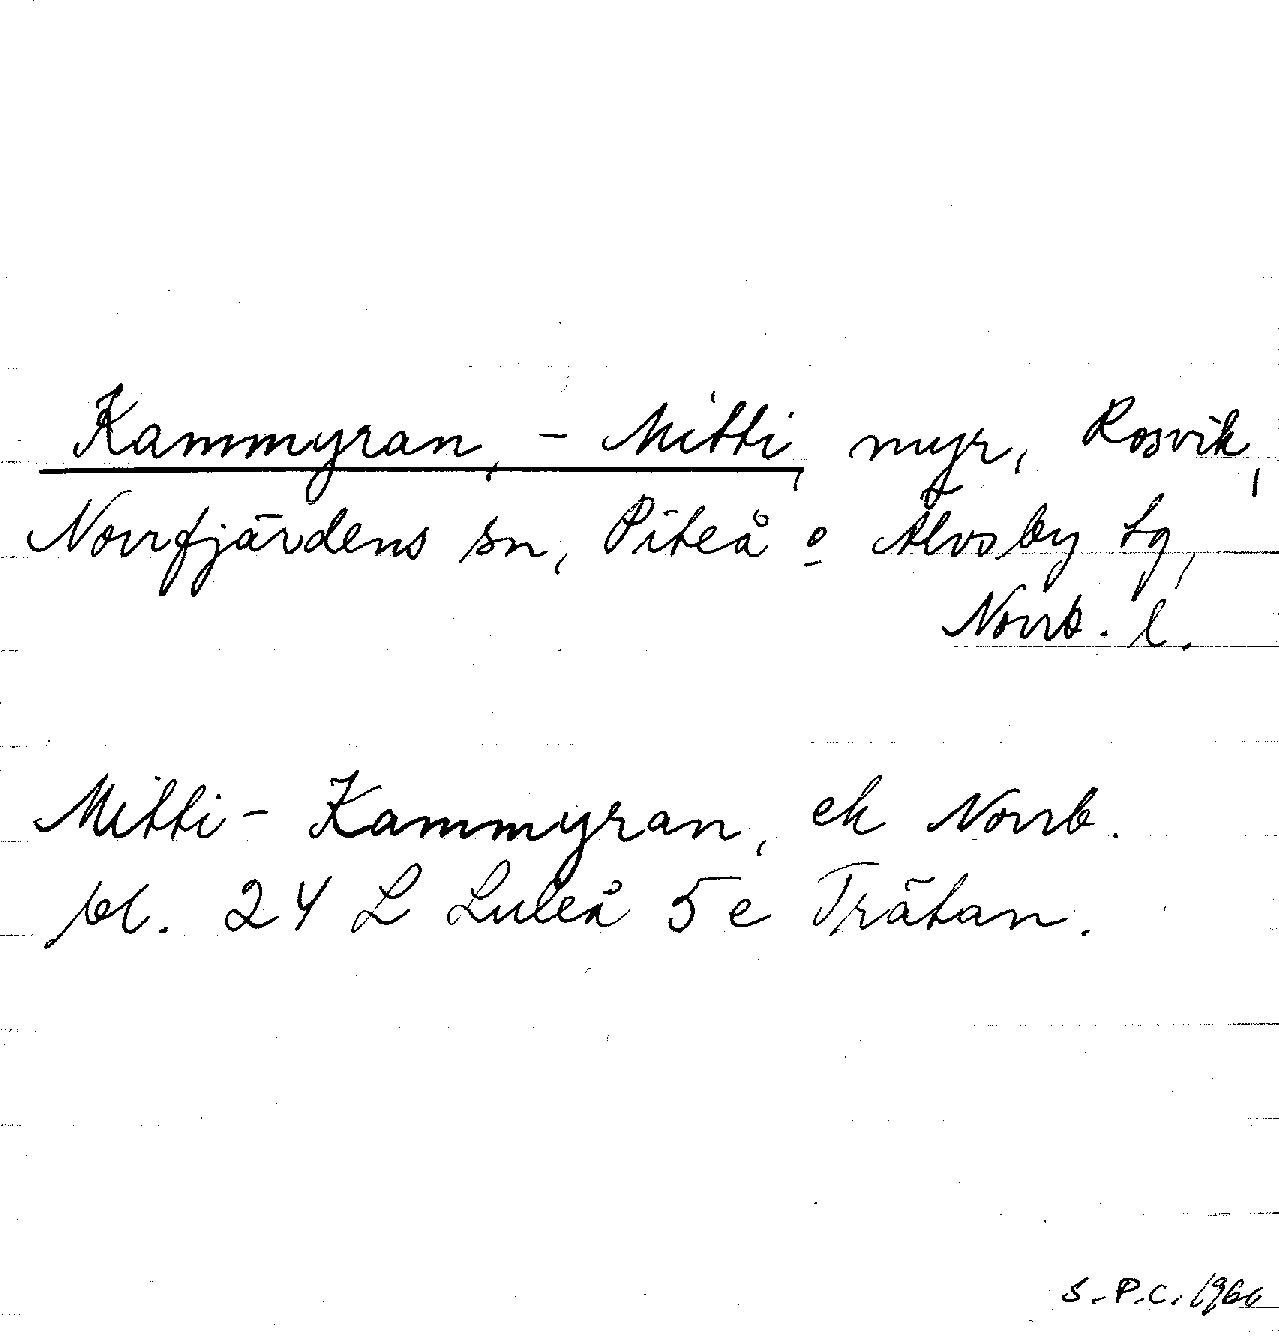 Kammyran, - Mitti, myr, Rosvik,
Norrfjärdens sn, Piteå o Älvsby tg,
Norrb. l.
Mitti- Kammyran, ek Norrb.
bl. 24 L Luleå 5 e Trätan.
S.P.C. 1966